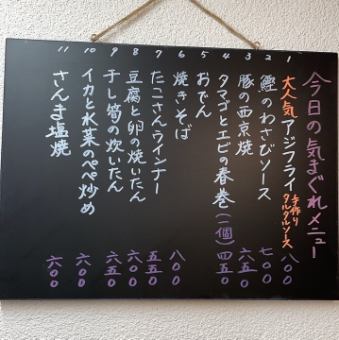 今日の気まぐれメニュー
1 大人気アジフライ 手作りタルタルソース 八〇〇
2 鰹のわさびソース 七〇〇
3 豚の西京焼 六五〇
4 タマゴとエビの春巻(二個) 四五〇
5 おでん
6 焼きそば 八〇〇
7 たこさんウインナー 五五〇
8 豆腐と卵の焼いたん 六五〇
9 干し筍の炊いたん 六五〇
10 イカと水菜のペペ炒め 六〇〇
11 さんま塩焼 六〇〇